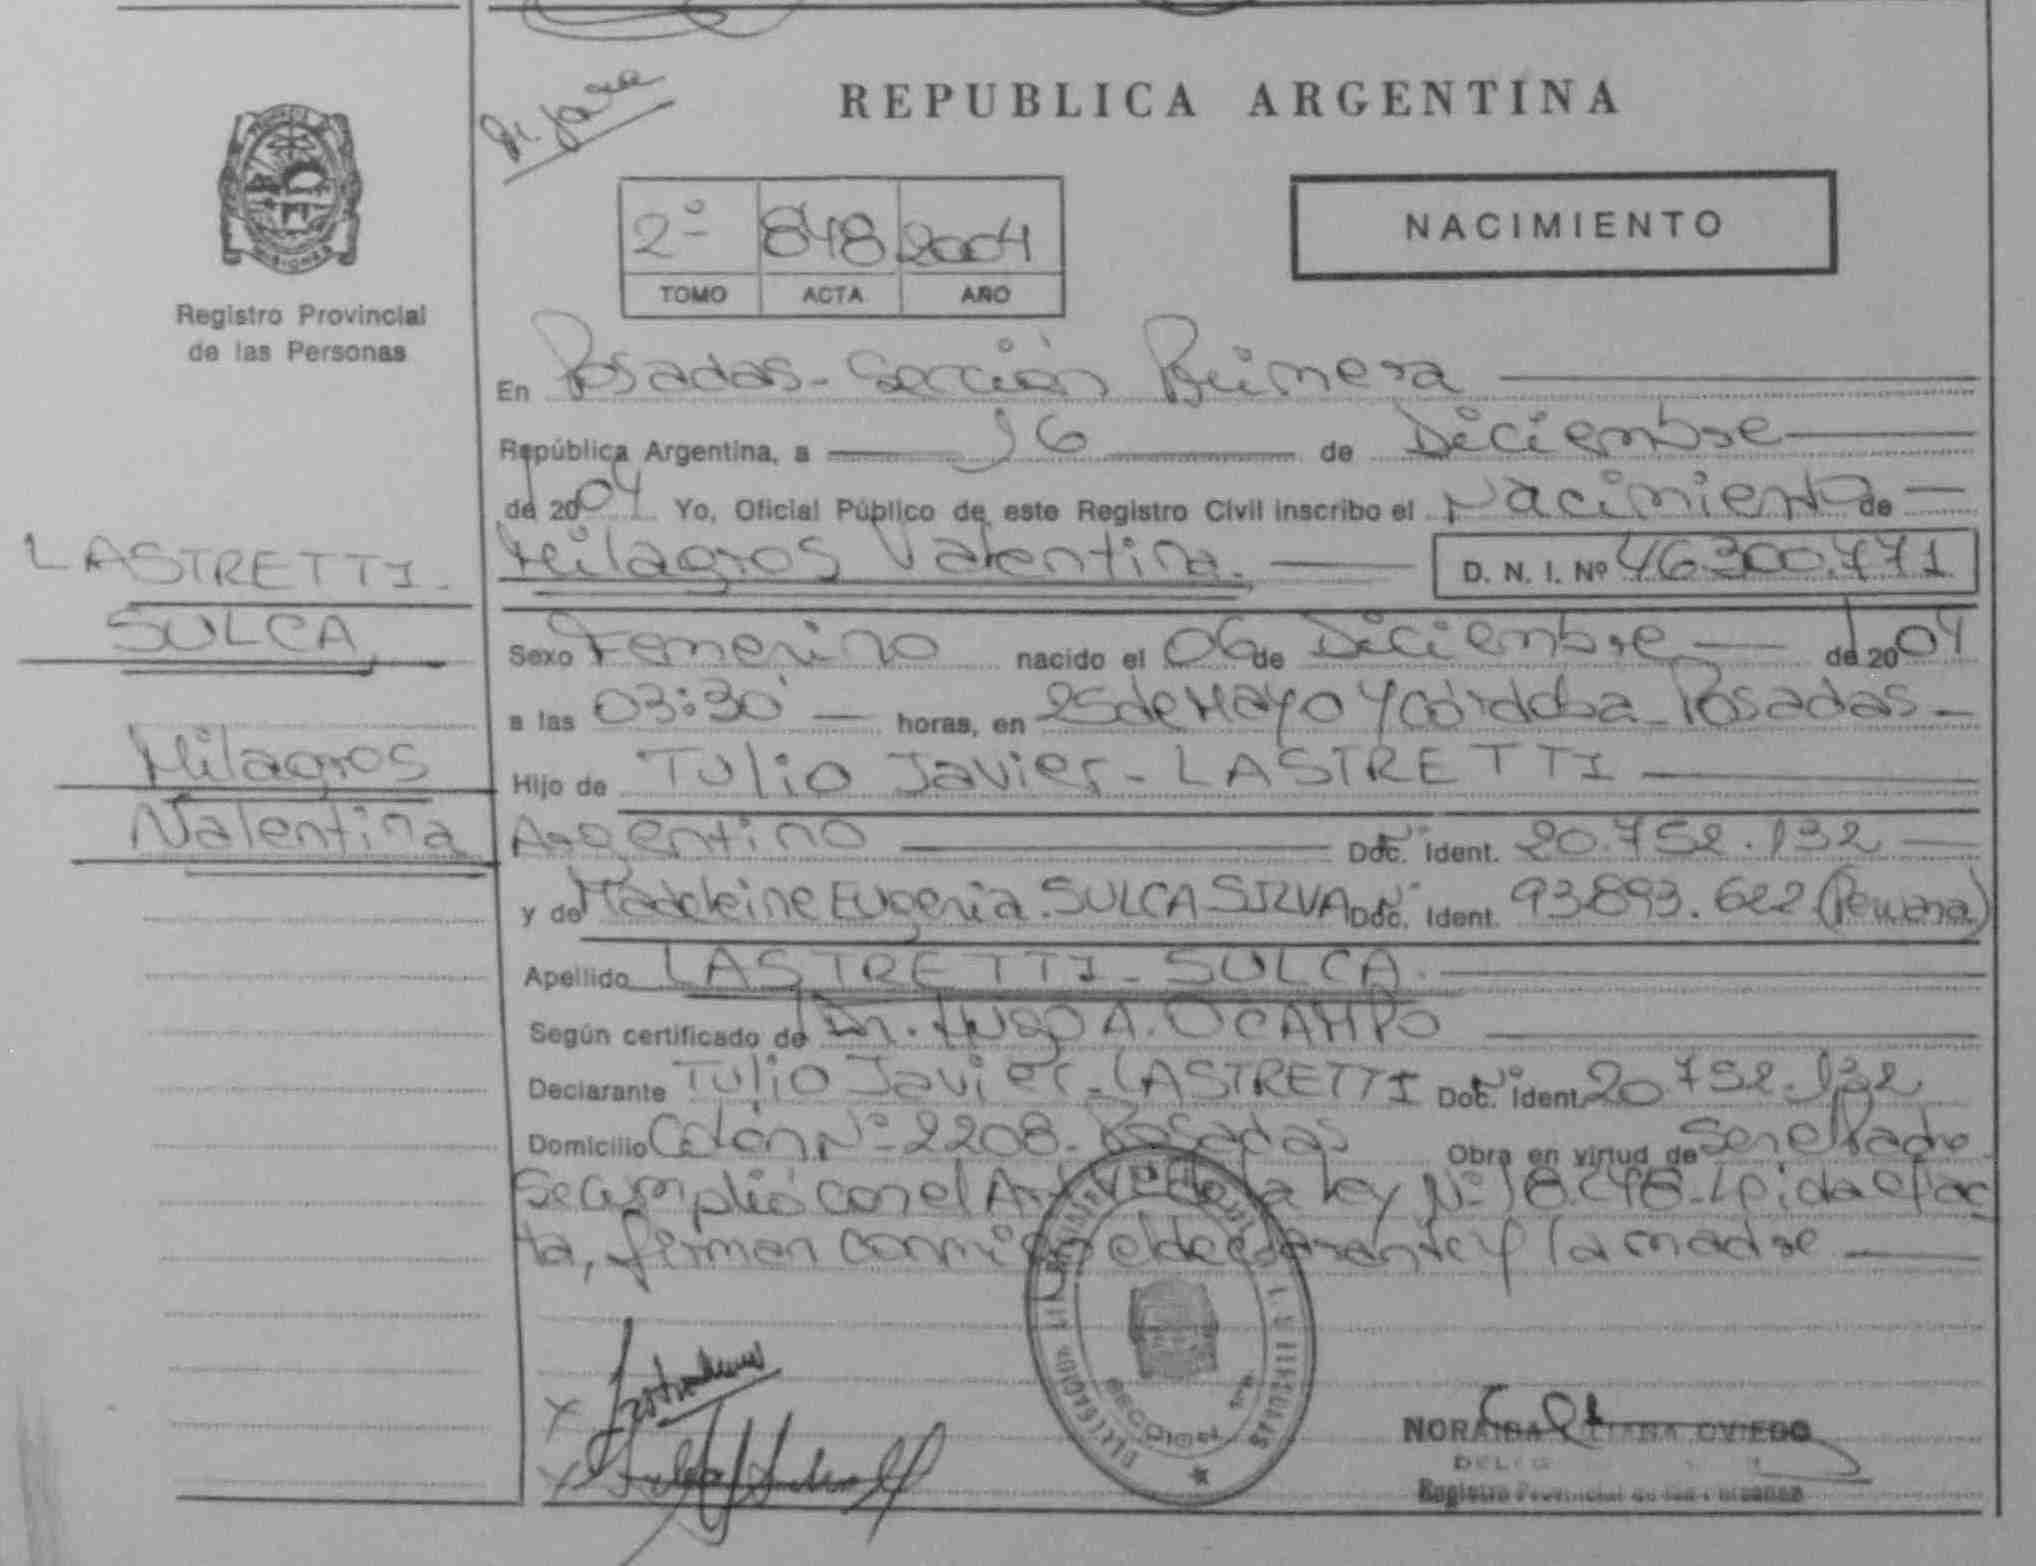 REPUBLICA ARGENTINA
NACIMIENTO
2º 848 2004
TOMO ACTA AÑO
MISIONES
Registro Provincial
de las Personas
En Posadas - Sección Primera
República Argentina, a 16 de Diciembre
de 2004 Yo, Oficial Público de este Registro Civil inscribo el Nacimiento de
Milagros Valentina. D. N. I. Nº 46300.771
LASTRETTI -
SULCA
Milagros
Valentina
Sexo Femenino nacido el 06 de Diciembre de 2004
a las 03:30' horas, en 25 de Mayo y Córdoba - Posadas -
Hijo de Tulio Javier - LASTRETTI
Argentino Doc. Ident. 20.752.132
y de Madeleine Eugenia. SULCA SILVA Doc. Ident. 93893.622 (Peruana)
Apellido LASTRETTI - SULCA.
Según certificado de Dr. Hugo A. OCAMPO
Declarante Tulio Javier - LASTRETTI Doc. Ident. 20752.132
Domicilio Colón Nº 2208 - Posadas Obra en virtud de Ser el Padre.
Se cumplió con el Art. de la Ley Nº 18.248 - Leída el ac
ta, firman conmigo el declarante y la madre
DELEGACION
SECCION 1ra
NORAIDA LILIANA OVIEDO
Registro Provincial de las Personas